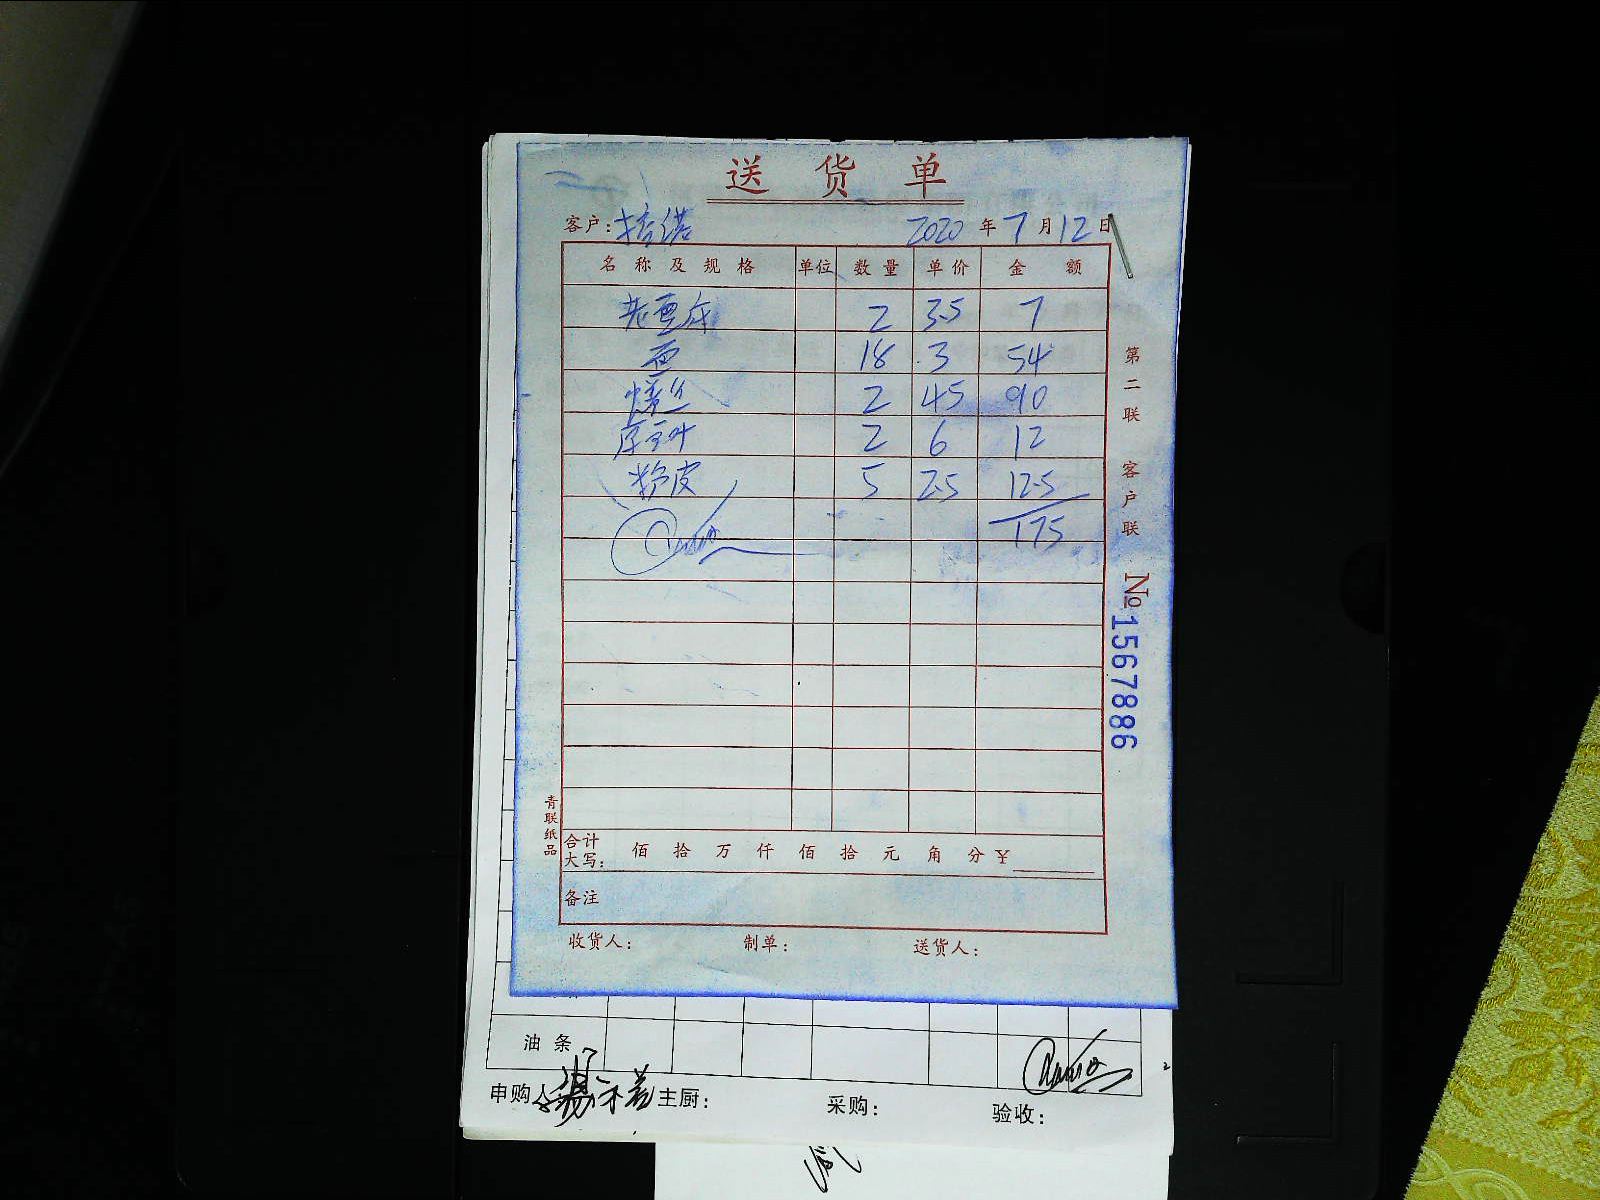 送货单
客户: 2020年7月12日
名称及规格 单位 数量 单价 金额
老豆腐 2 3.5 7
面 18 3 54
2 45 90
2 6 12
粉皮 5 2.5 12.5
175
第二联 客户联
№1567886
青联纸品
合计大写: 佰 拾 万 仟 佰 拾 元 角 分 ¥
备注
收货人: 制单: 送货人:
油条
申购人 主厨: 采购: 验收: